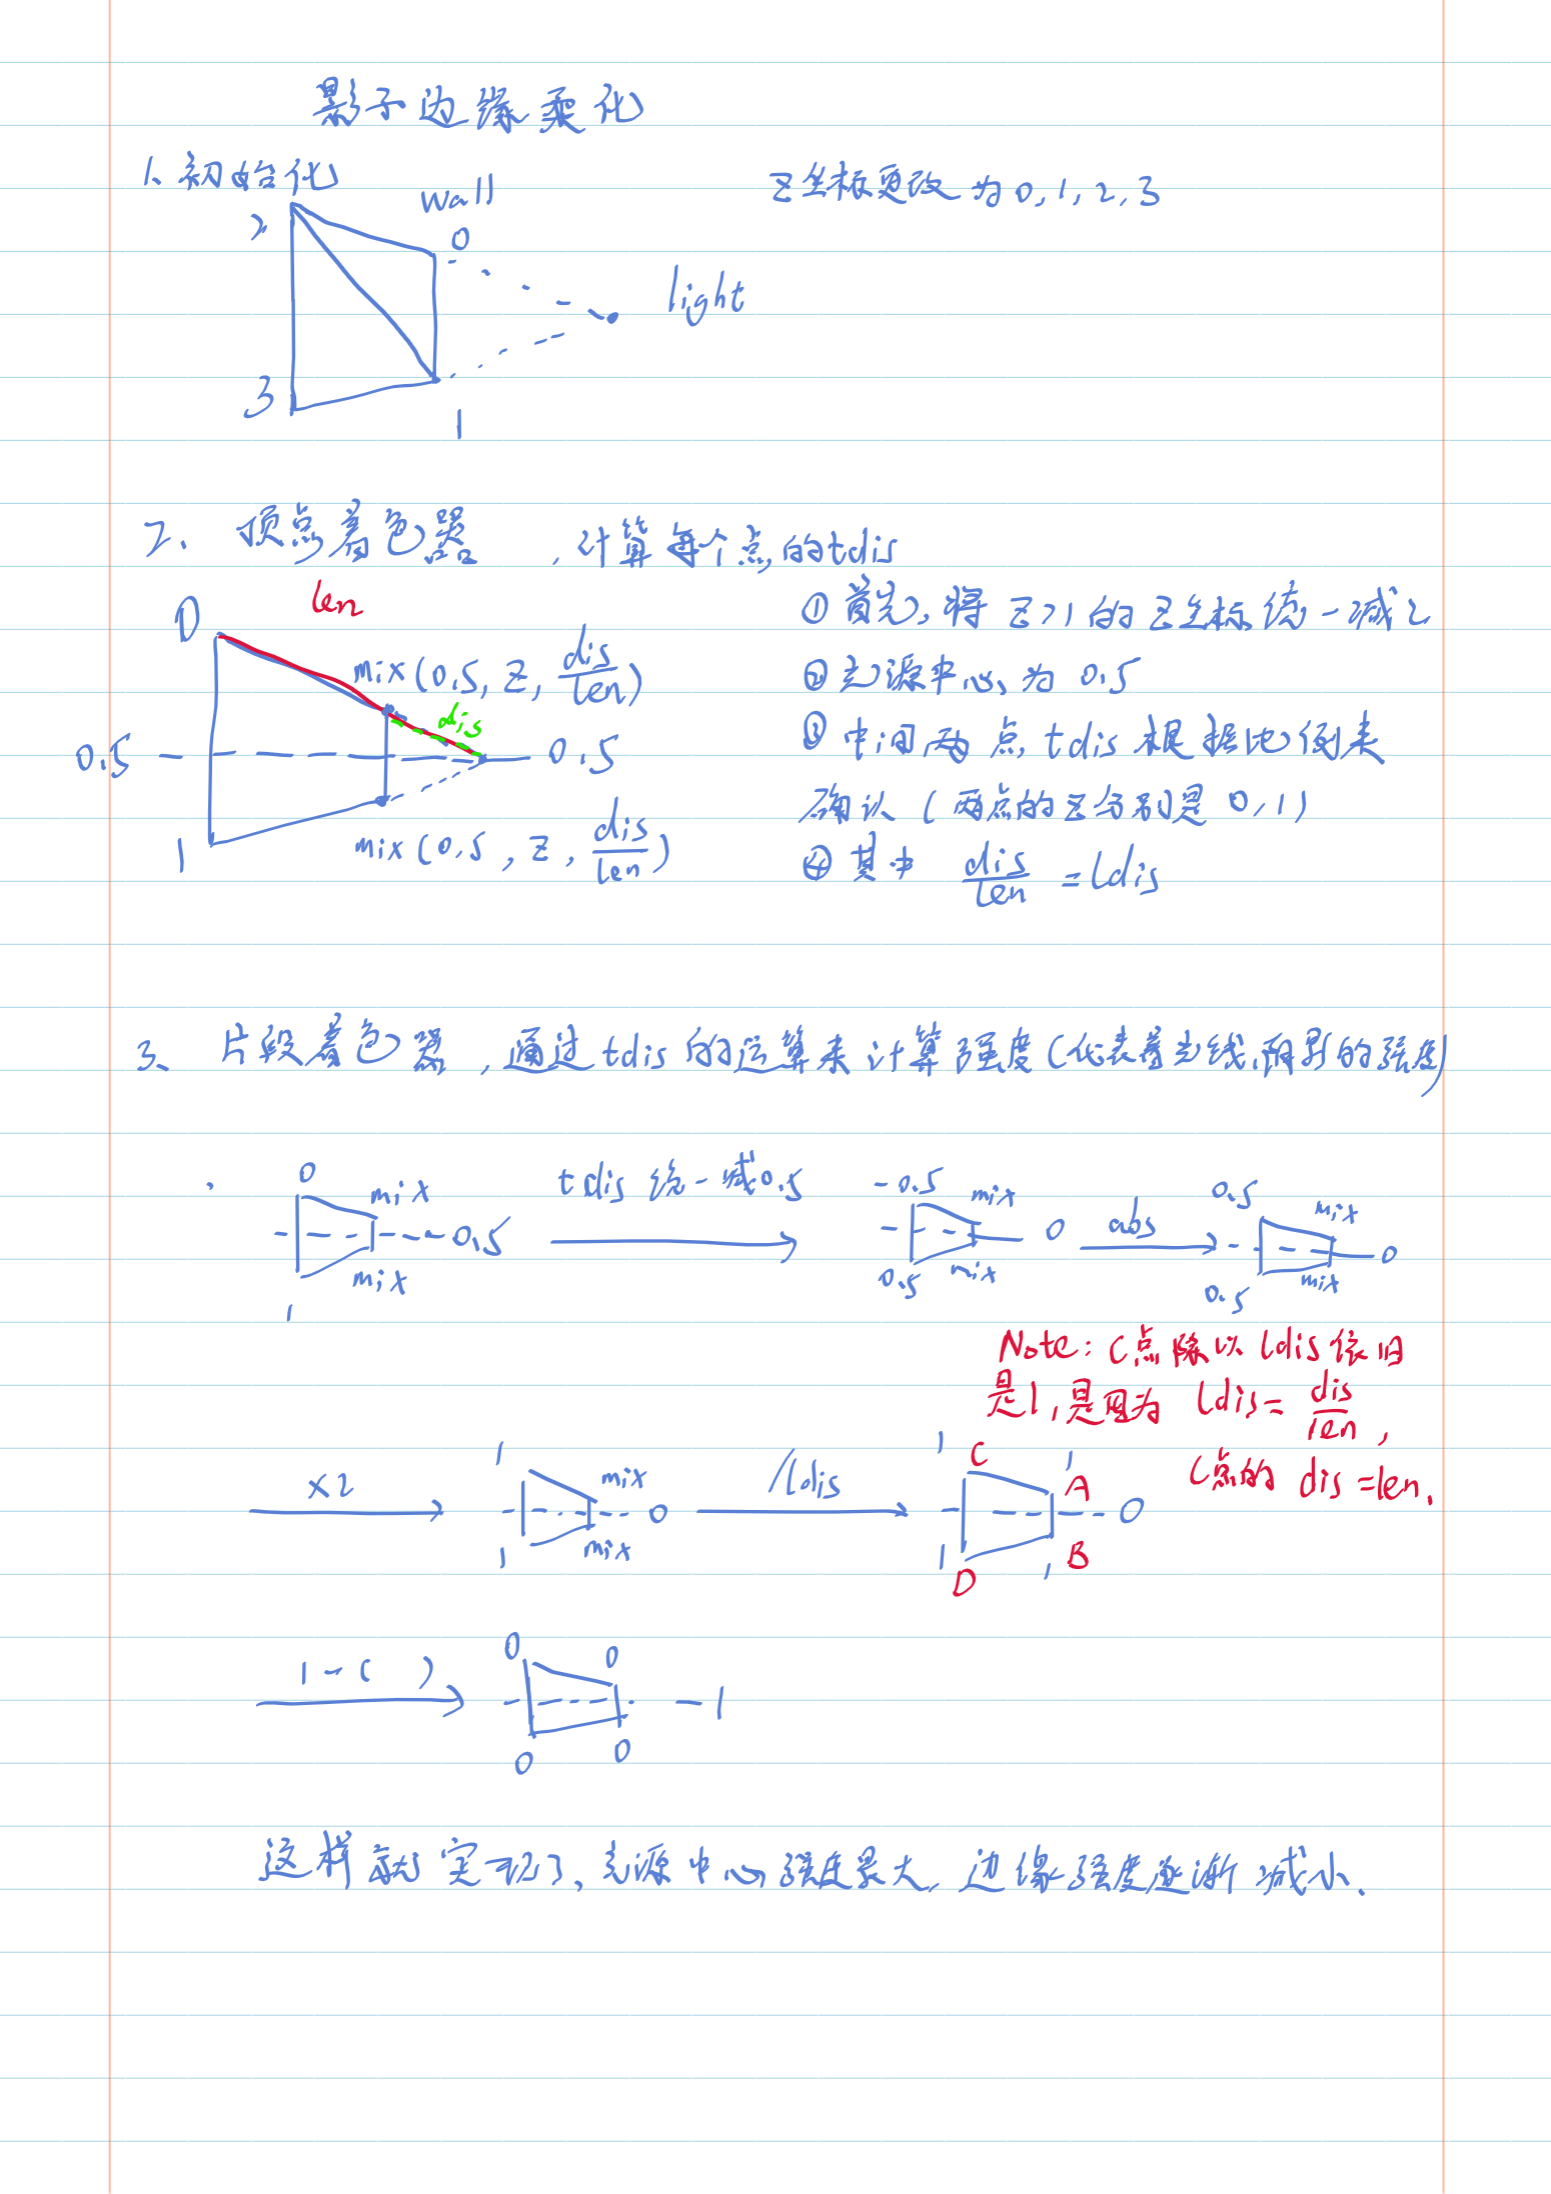 影子边缘柔化
1、初始化
Z坐标更改为0,1,2,3
wall
2
0
light
3
1
2、顶点着色器,计算每个点的tdis
len
0
①首先,将Z>1的Z坐标统一减2
mix(0.5, Z, dis/len)
②光源中心为0.5
dis
0.5
0.5
③中间两点,tdis根据比例来
确认(两点的Z分别是0,1)
1
mix(0.5, Z, dis/len)
④其中 dis/len = ldis
3、片段着色器,通过tdis的运算来计算强度(代表着光线,阴影的强度)
0
mix
0.5
mix
1
tdis统一减0.5
-0.5
mix
0
0.5
mix
abs
0.5
mix
0
0.5
mix
Note: C点除以ldis依旧
是1,是因为 ldis = dis/len,
C点的 dis = len.
×2
1
mix
0
1
mix
/ldis
1
C
1
A
0
1
D
1
B
1-( )
0
0
1
0
0
这样就实现了,光源中心强度最大,边缘强度逐渐减小.